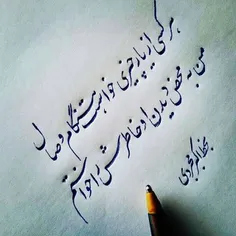 هر کسی از یار چیزی خواست هنگام وصال
من به محض دیدن او خاطرش را خواستم
بخط اکبر مجردی